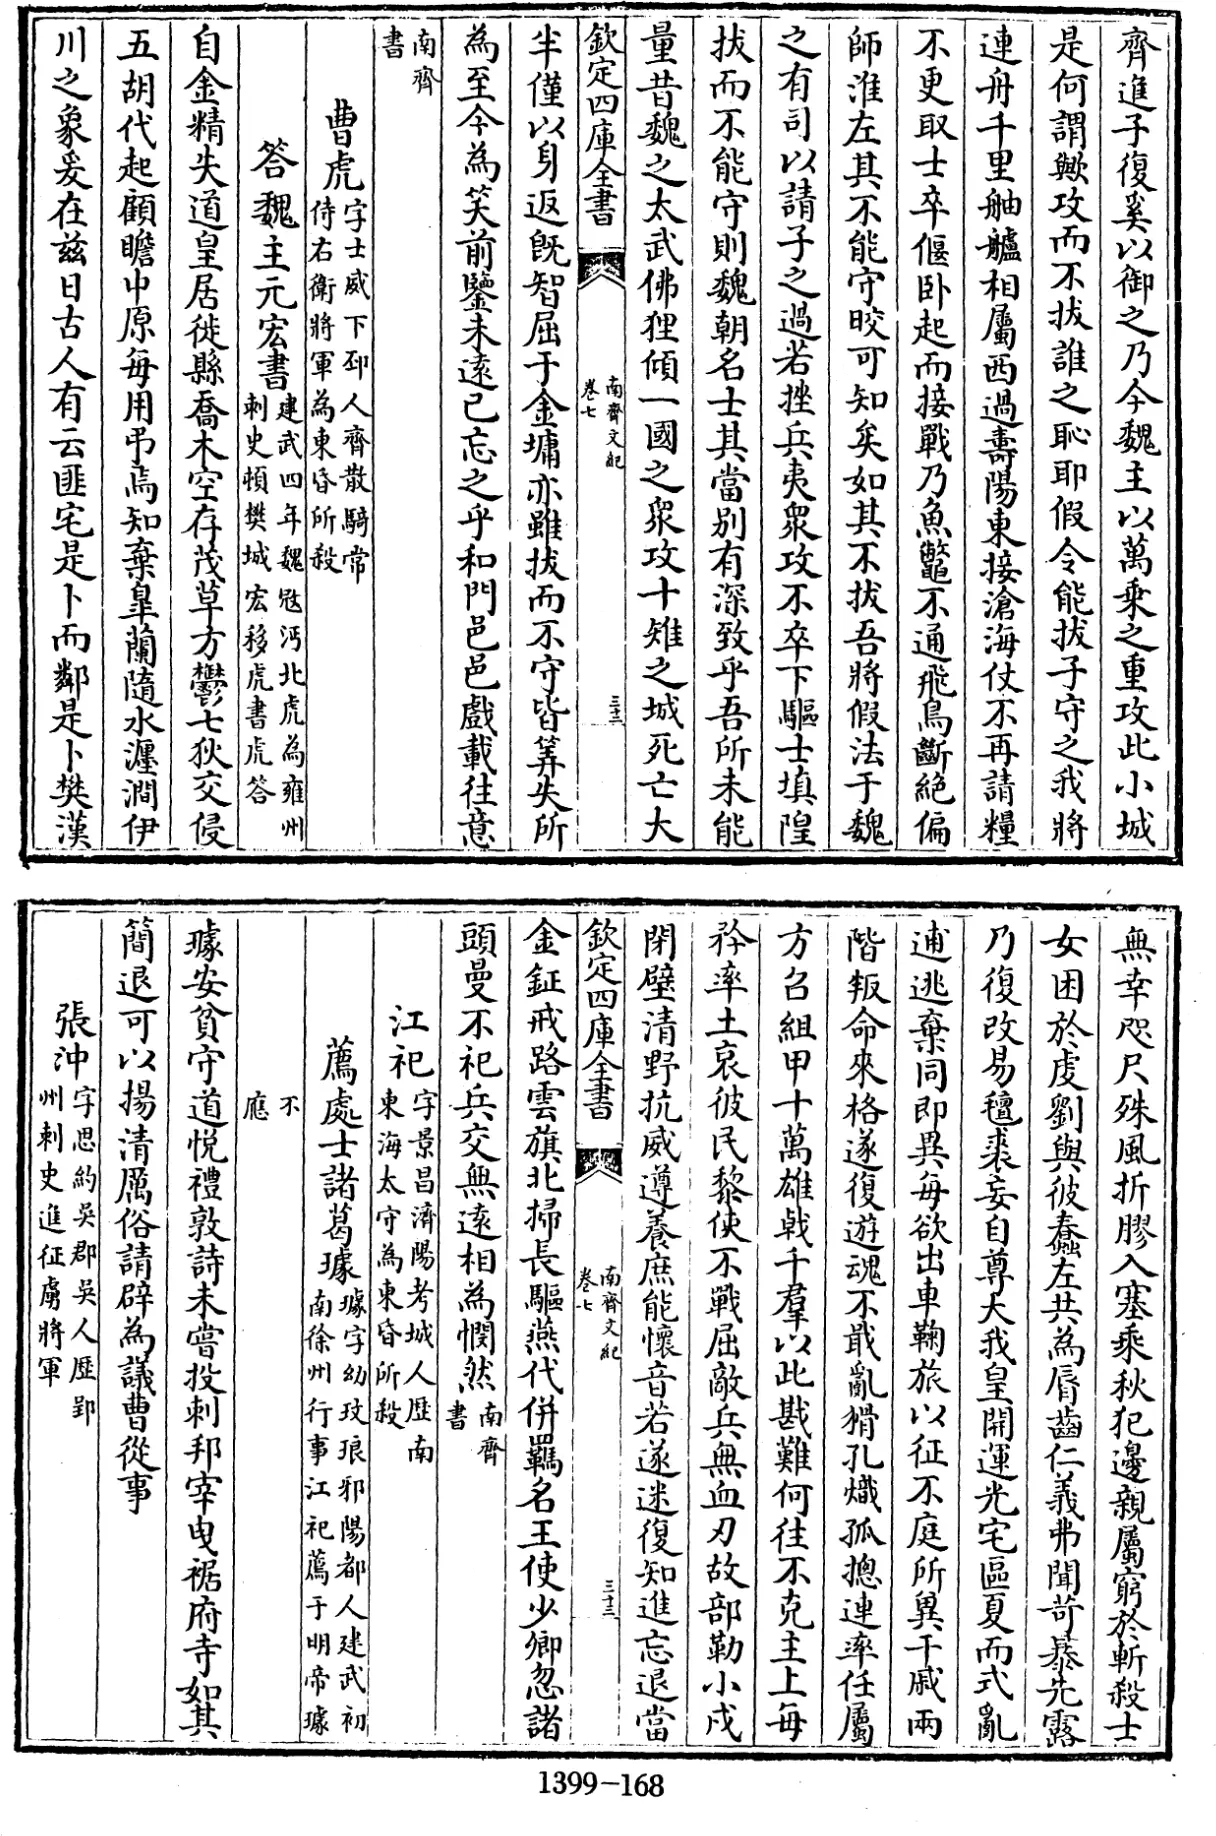 齊進子復奚以御之乃今魏主以萬乘之重攻此小城
是何謂歟攻而不拔誰之恥耶假令能拔子守之我將
連舟千里舳艫相屬西過壽陽東接滄海仗不再請糧
不更取士卒偃卧起而接戰乃魚鼈不通飛鳥斷絶偏
師淮左其不能守晈可知矣如其不拔吾將假法于魏
之有司以請子之過若挫兵夷衆攻不卒下驅士填隍
拔而不能守則魏朝名士其當別有深致乎吾所未能
量昔魏之太武佛狸傾一國之衆攻十雉之城死亡大
欽定四庫全書
南齊文紀
卷七
三十二
半僅以身返既智屈于金墉亦雖拔而不守皆筭失所
為至今為笑前鑒未遠已忘之乎和門邑邑戲載往意
南齊
書
曹虎
字士威下邳人齊散騎常
侍右衛將軍為東昏所殺
答魏主元宏書
建武四年魏寇沔北虎為雍州
刺史頓樊城宏移虎書虎答
自金精失道皇居徙縣喬木空存茂草方鬱七狄交侵
五胡代起顧瞻中原每用弔焉知棄臯蘭隨水瀍澗伊
川之象爰在兹日古人有云匪宅是卜而鄰是卜樊漢
無幸咫尺殊風折膠入塞乘秋犯邊親屬窮於斬殺士
女困於虔劉與彼蠢左共為脣齒仁義弗聞苛暴先露
乃復改易氊裘妄自尊大我皇開運光宅區夏而式亂
逋逃棄同即異每欲出車鞠旅以征不庭所冀干戚兩
階叛命來格遂復遊魂不戢亂猾孔熾孤摠連率任屬
方召組甲十萬雄㦸千羣以此戡難何往不克主上每
矜率土哀彼民黎使不戰屈敵兵無血刃故部勒小戍
閉壁清野抗威遵養庶能懷音若遂迷復知進忘退當
欽定四庫全書
南齊文紀
卷七
三十三
金鉦戒路雲旗北掃長驅燕代併羈名王使少卿忽諸
頭曼不祀兵交無遠相為憫然
南齊
書
江祀
字景昌濟陽考城人歷南
東海太守為東昏所殺
薦處士諸葛璩
璩字幼玟琅邪陽都人建武初
南徐州行事江祀薦于明帝璩
不
應
璩安貧守道悅禮敦詩未嘗投刺邦宰曳裾府寺如其
簡退可以揚清厲俗請辟為議曹從事
張沖
字思約吳郡吳人歷郢
州刺史進征虜將軍
1399-168